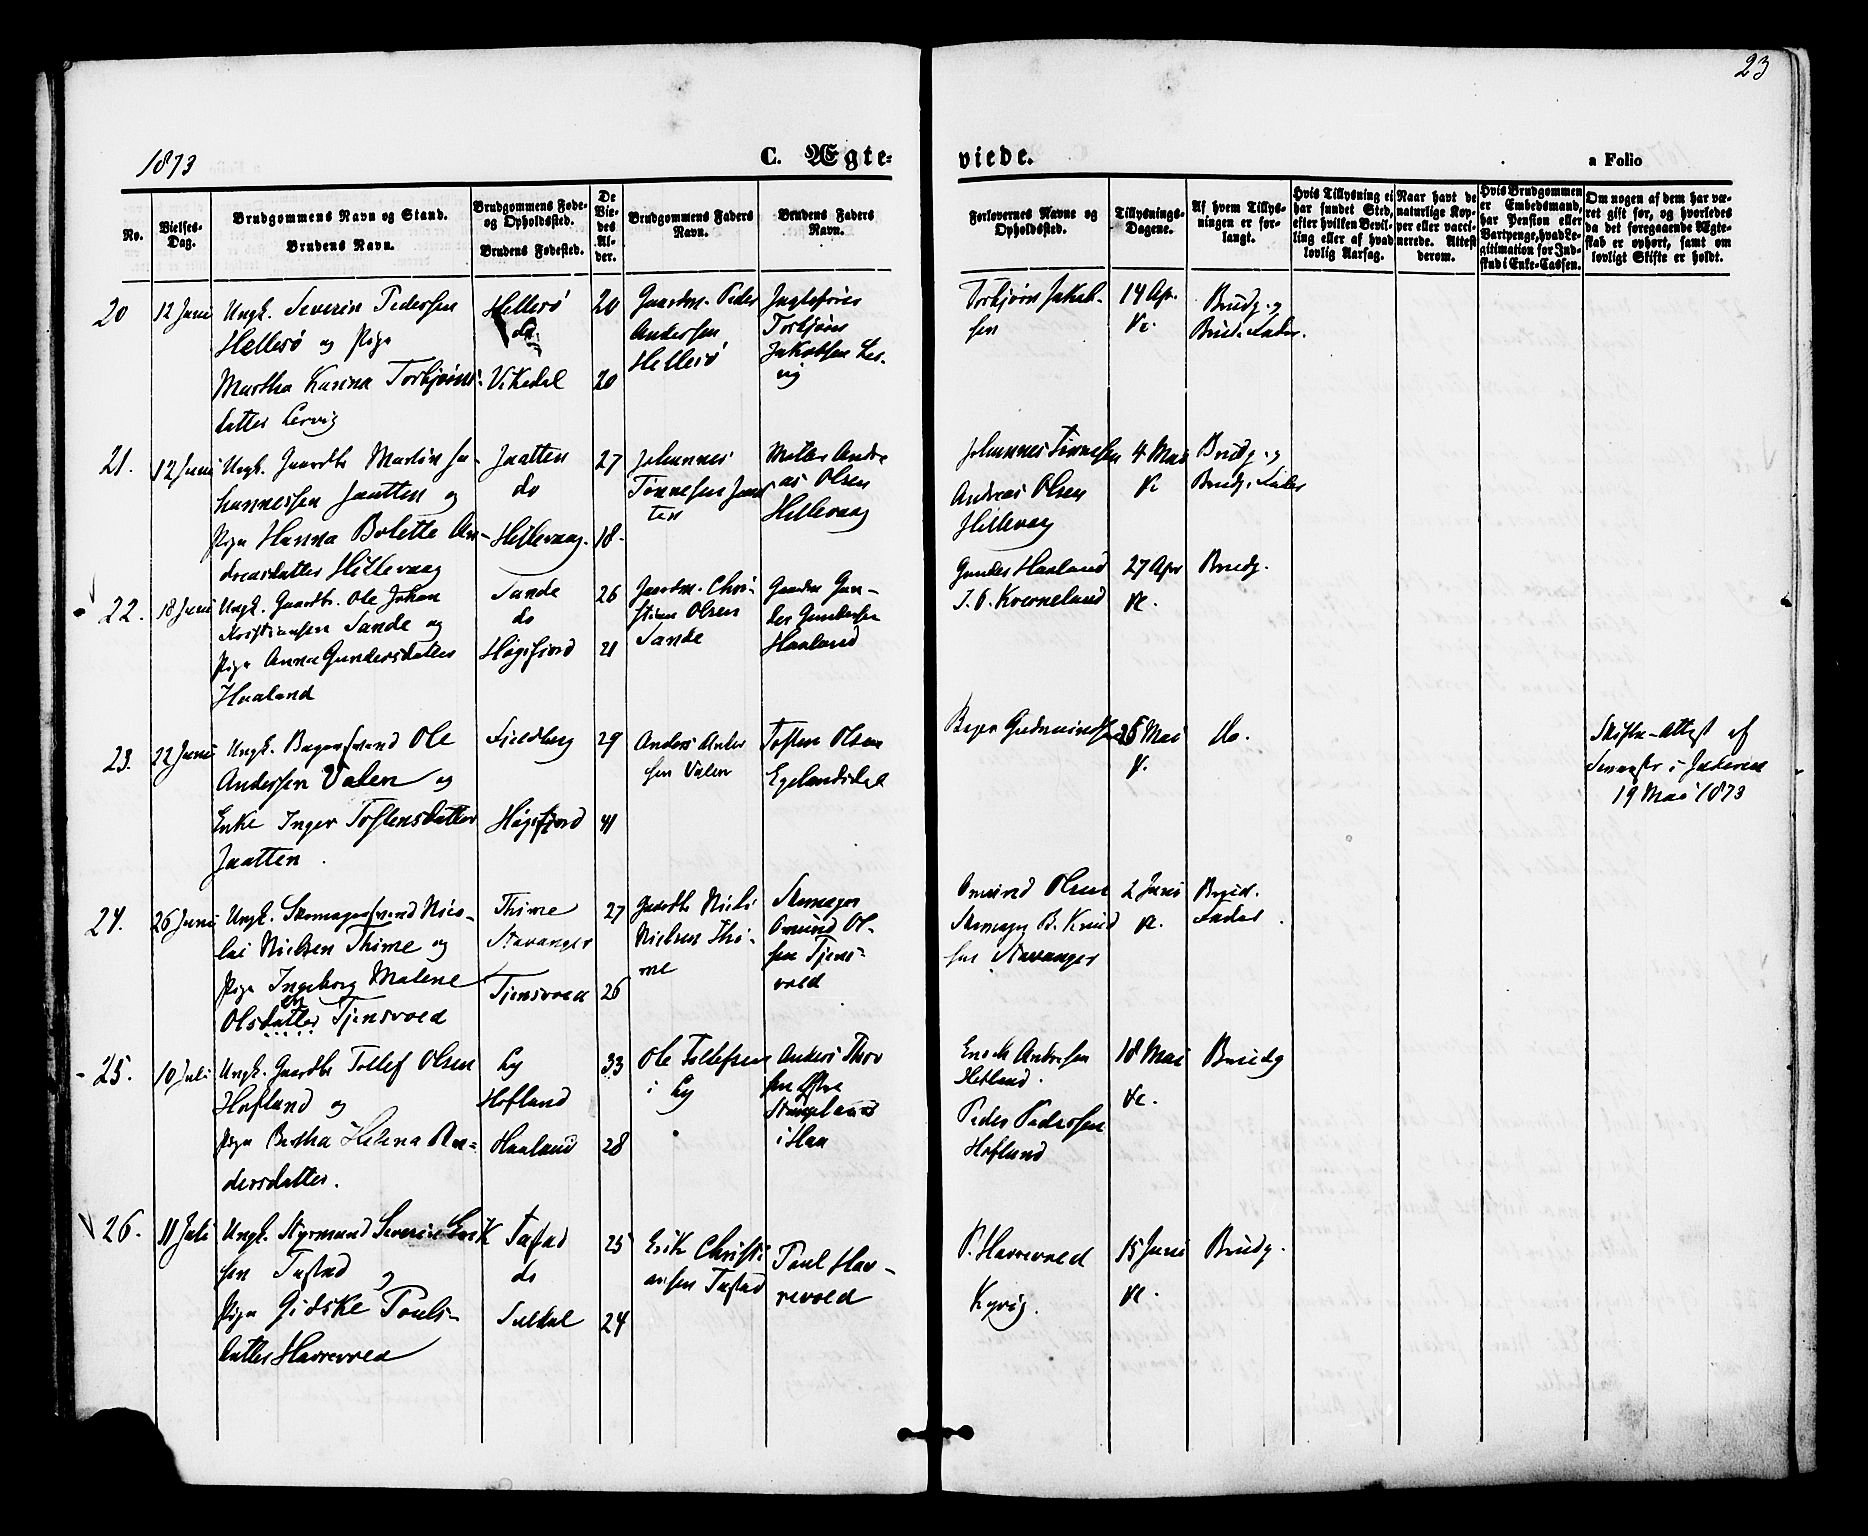 23
1873
C. Ægte-
viede.
a Folio
No.
Vielses-
Dag.
Brudgommens Navn og Stand.
Brudens Navn.
Brudgommens Føde-
og Opholdssted.
Brudens Fødested.
De
Vie-
des
Al-
der.
Brudgommens Faders
Navn.
Brudens Faders
Navn.
Forlovernes Navne og
Opholdssted.
Tillysnings-
Dagene.
Af hvem Tillys-
ningen er for-
langt.
Hvis Tillysning ei
har fundet Sted,
efter hvilken Bevil-
ling eller af hvad
lovlig Aarsag.
Naar havt de
naturlige Kop-
per eller vacci-
nerede. Attest
derom.
Hvis Brudgommen
er Embedsmand,
har Pension eller
Vartpenge, hvad Le-
gitimation for Ind-
skud i Enke-Cassen.
Om nogen af dem har væ-
ret gift før, og hvorledes
da det foregaaende Ægte-
skab er ophørt, samt om
lovligt Skifte er holdt.
20
12 Juni
Ungk. Severin Pedersen
Hellesø og Pige
Martha Karina Torbjøns-
datter Lervig
Hellesø
do.
Vikedal
20
20
Gaardm. Peder
Andersen
Hellesø
Torbjøn
Jakobsen Ler-
vig
Torbjøn Jakob-
sen
14 Apr.
&c.
Brudg. og
Brud. Fader.
21.
12 Juni
Ungk. Gaardbr Martin Jo-
hannessen Jaatten og
Pige Hanna Bolette An-
dreasdatter Hillevaag
Jaatten
do
Hillevaag.
27
18.
Johannes
Tønnesen Jaat-
ten
Møller Andre
as Olsen
Hillevaag
Johannes Tønnesen
Andreas Olsen
Hillevaag
4 Mai
&c
Brudg. og
Brudg. Fader
22.
18 Juni
Ungk. Gaardbr. Ole Johan
Kristiansen Sande og
Pige Anna Gundersdatter
Haaland
Sande
do
Høgsfjord
26
21
Gaardm. Chri-
stian Olsen
Sande
Gaardm Gun-
der Gundersen
Haaland
Gunder Haaland
T. O. Kverneland
27 Apr
&c.
Brudg.
23.
22 Juni
Ungk. Bagersvend Ole
Andersen Valen og
Enke Inger Tostensdatter
Jaatten.
Fjeldberg
Høgsfjord
29
41
Anders Ander
sen Valen
Tosten Olsen
Egelandsdal
Bager Gudmundsen
25 Mai
&.
do.
Skifte-Attest af
Sorenskr i Jæderen
19 Mai 1873
24.
26 Juni
Ungk. Skomagersvend Nico-
lai Nielsen Thime og
Pige Ingeborg Malene
Olsdatter Tjensvold
Thime
Stavanger
Tjensvold
27
26
Gaardbr Niels
Nielsen Thi-
me
Skomager
Omund Ol-
sen Tjens-
vold
Omund Olsen
Skomager B. Knud
sen Stavanger
2 Juni
&c.
Brud.
Fader.
25.
10 Juli
Ungk. Gaardbr Tollef Olsen
Hofland og
Pige Bertha Helena An-
dersdatter.
Ly
Hofland
Haaland
33
28
Ole Tollefsen
i Ly
Anders Thor
sen Østre
Stangeland
i Haa
Enok Andersen
Hetland.
Peder Pedersen
Hofland
18 Mai
&c.
Brudg
26.
11 Juli
Ungk. Styrmand Severin Erik
sen Tastad og
Pige Gidske Pouls-
datter Havrevold
Tastad
do
Suldal
25
24
Erik Christi
ansen Tastad
Poul Hav-
revold
P. Havrevold
Kyvig.
15 Juni
&c.
Brudg.